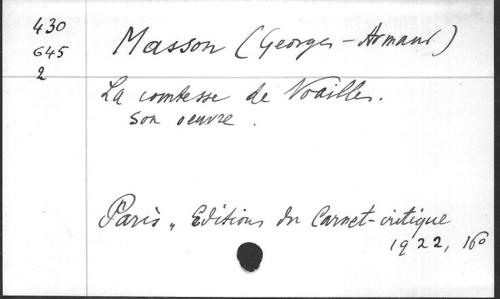 430
G45
2
Masson (Georges-Armand)
La comtesse de Noailles.
Son oeuvre.
Paris, Editions du Carnet-critique
1922, 16o